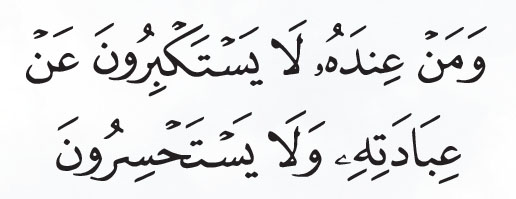 وَمَنۡ عِندَهُۥ لَا يَسۡتَكۡبِرُونَ عَنۡ
عِبَادَتِهِۦ وَلَا يَسۡتَحۡسِرُونَ